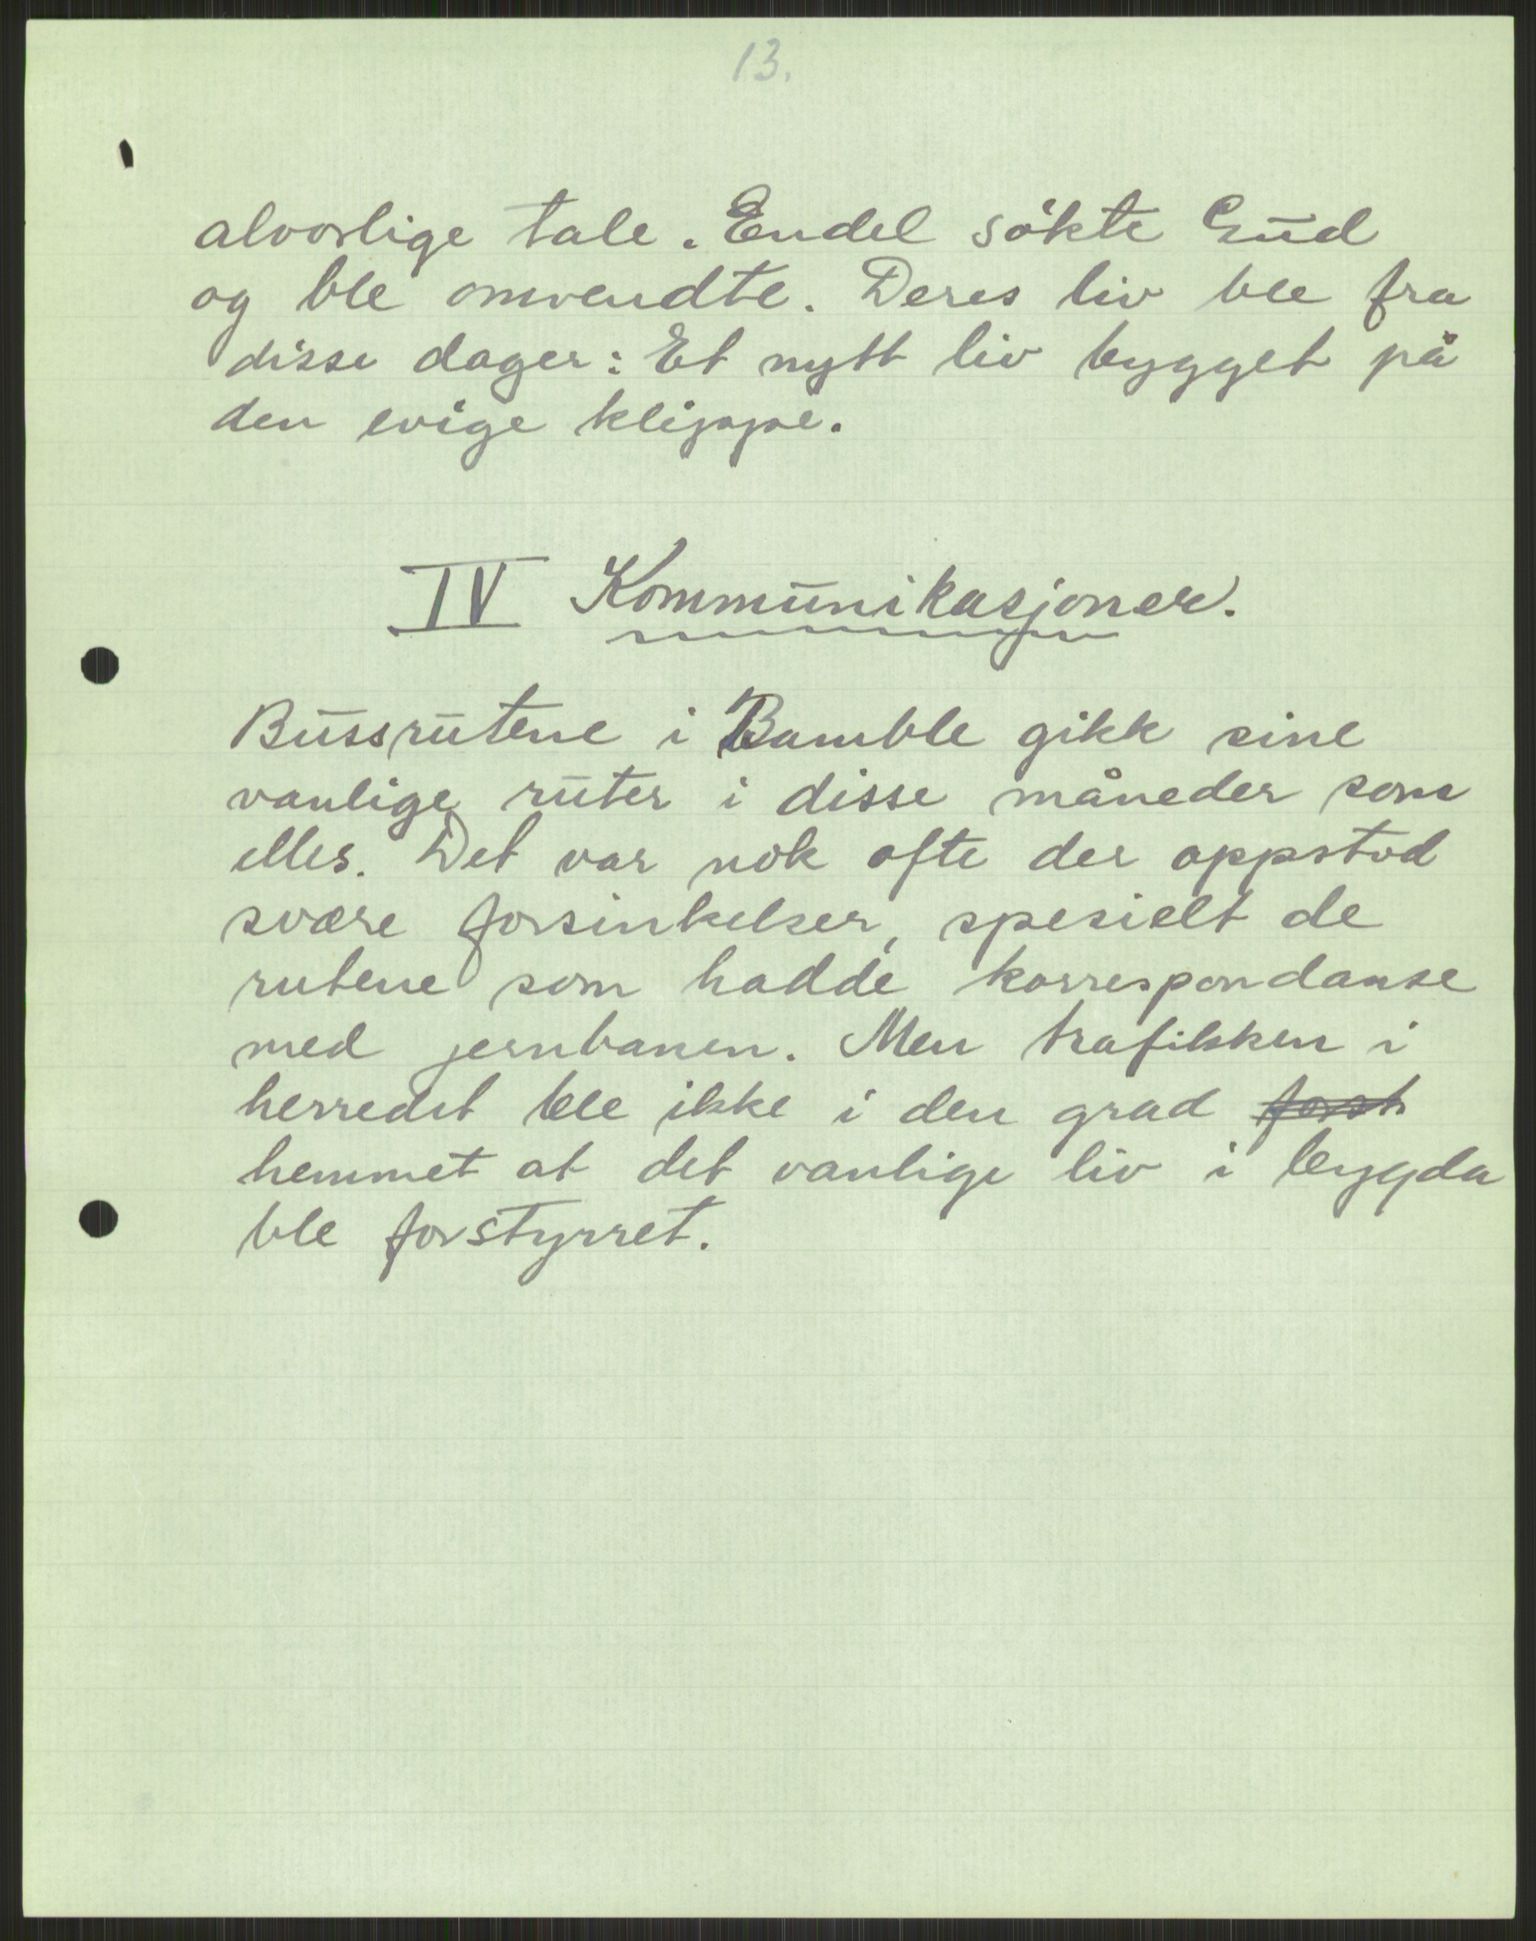 13.
alvorlige tale. Endel søkte Gud
og ble omvendte. Deres liv ble fra
disse dager: Et nytt liv bygget på
den evige klippe.
IV Kommunikasjoner.
Bussrutene i Bamble gikk sine
vanlige ruter i disse måneder som
elles. Det var nok ofte der oppstod
svære forsinkelser, spesielt de
rutene som hadde korrespondanse
med jernbanen. Men trafikken i
herredet ble ikke i den grad forst
hemmet at det vanlige liv i bygda
ble forstyrret.